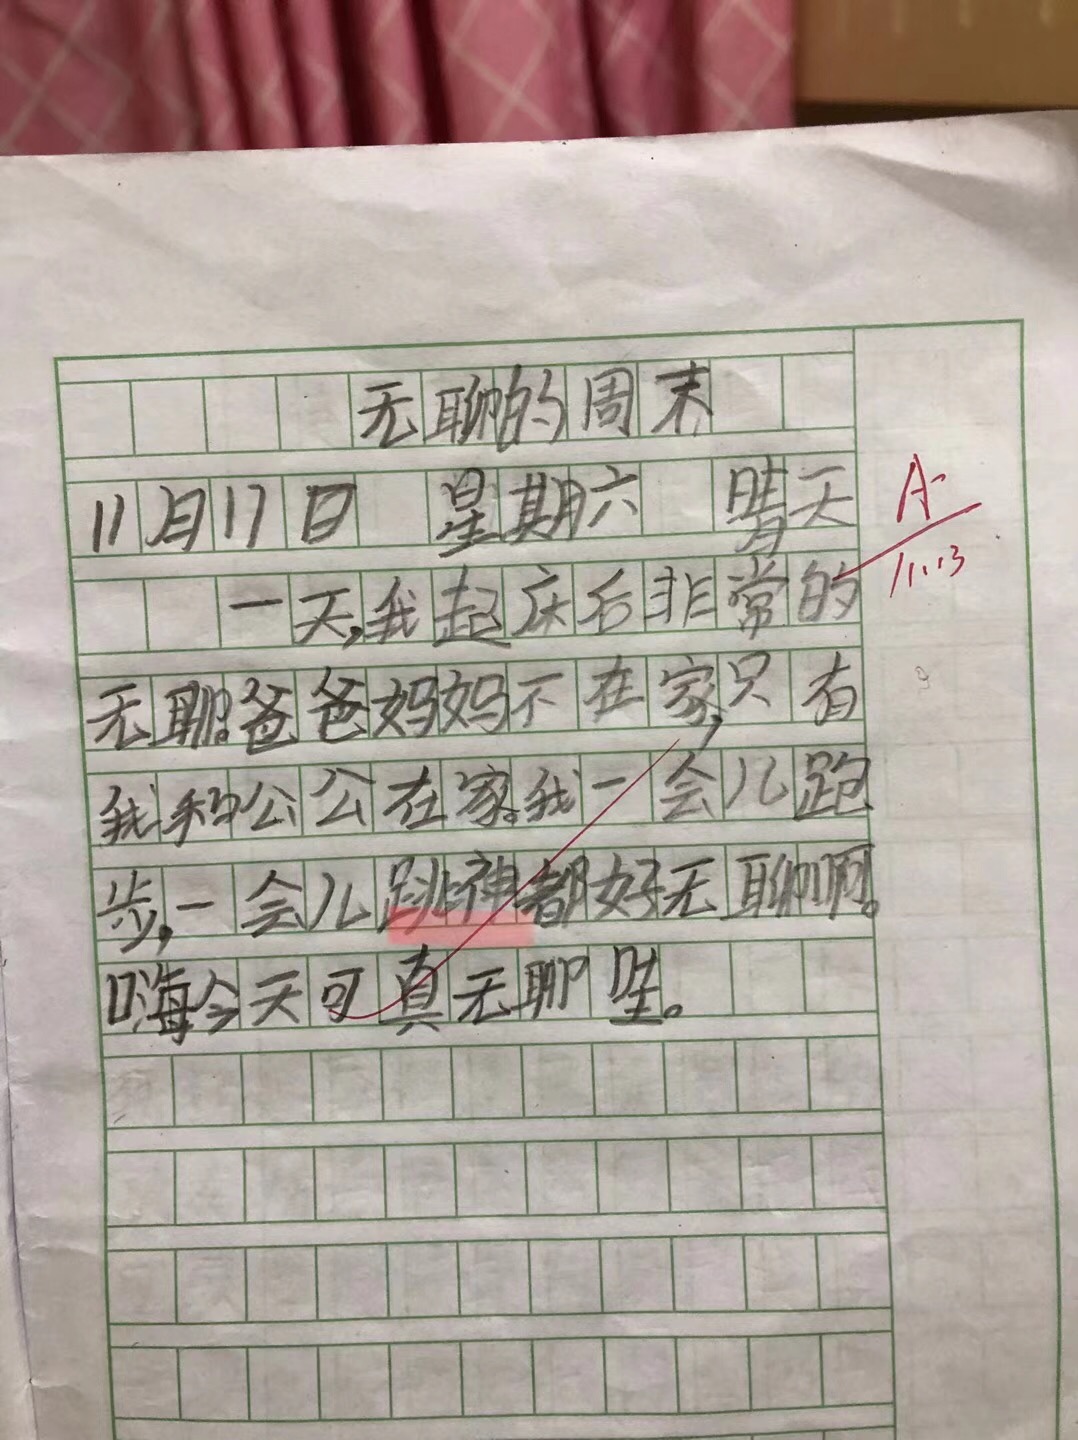 无聊的周末
11月17日 星期六 晴天
A-
一天,我起庆后非常的
11.13
无聊。爸爸妈妈不在家,只有
我和公公在家。我一会儿跑
步,一会儿跳神都好无聊啊。
嗨今天可真无聊哇。